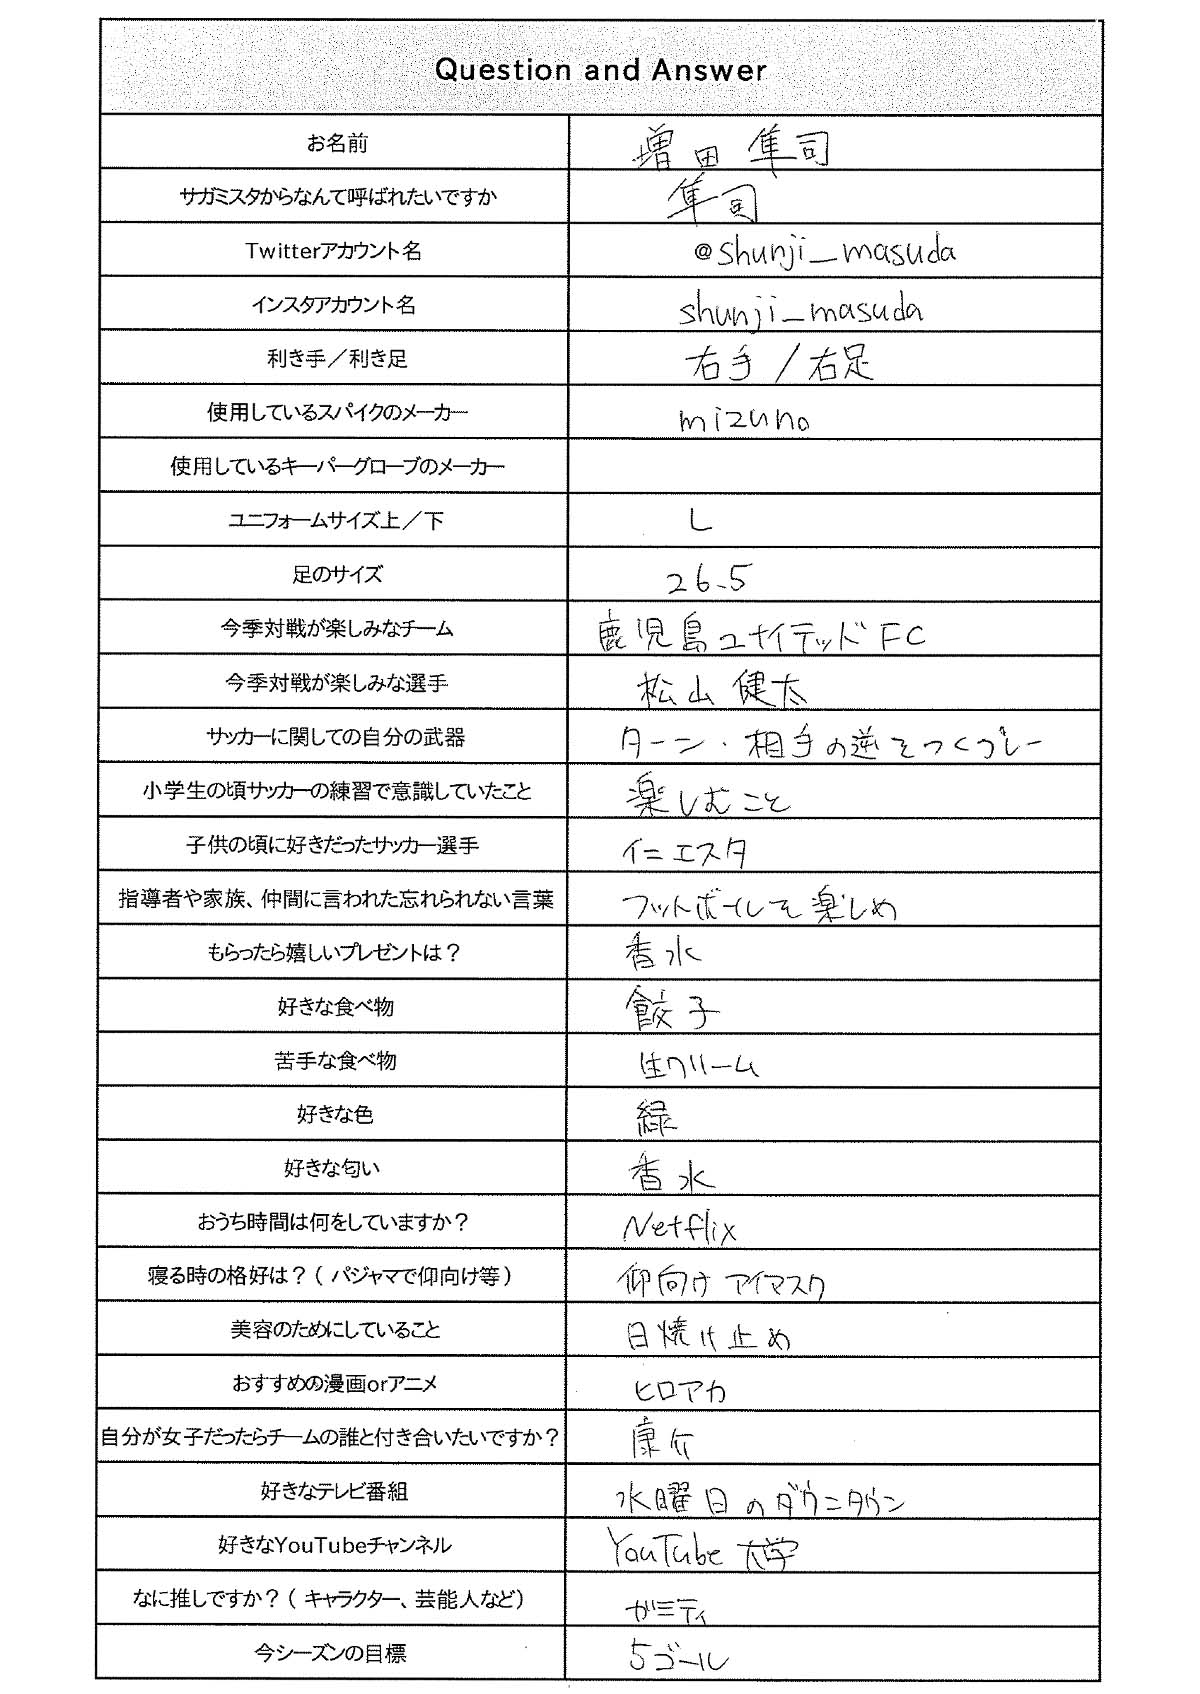 Question and Answer
お名前
増田 隼司
サガミスタからなんて呼ばれたいですか
隼司
Twitterアカウント名
@shunji_masuda
インスタアカウント名
shunji_masuda
利き手／利き足
右手 / 右足
使用しているスパイクのメーカー
mizuno
使用しているキーパーグローブのメーカー
ユニフォームサイズ上／下
L
足のサイズ
26.5
今季対戦が楽しみなチーム
鹿児島ユナイテッドFC
今季対戦が楽しみな選手
松山 健太
サッカーに関しての自分の武器
ターン・相手の逆をつくプレー
小学生の頃サッカーの練習で意識していたこと
楽しむこと
子供の頃に好きだったサッカー選手
イニエスタ
指導者や家族、仲間に言われた忘れられない言葉
フットボールを楽しめ
もらったら嬉しいプレゼントは？
香水
好きな食べ物
餃子
苦手な食べ物
生クリーム
好きな色
緑
好きな匂い
香水
おうち時間は何をしていますか？
Netflix
寝る時の格好は？（パジャマで仰向け等）
仰向け アイマスク
美容のためにしていること
日焼け止め
おすすめの漫画orアニメ
ヒロアカ
自分が女子だったらチームの誰と付き合いたいですか？
康介
好きなテレビ番組
水曜日のダウンタウン
好きなYouTubeチャンネル
YouTube 大学
なに推しですか？（キャラクター、芸能人など）
ガミティ
今シーズンの目標
5ゴール